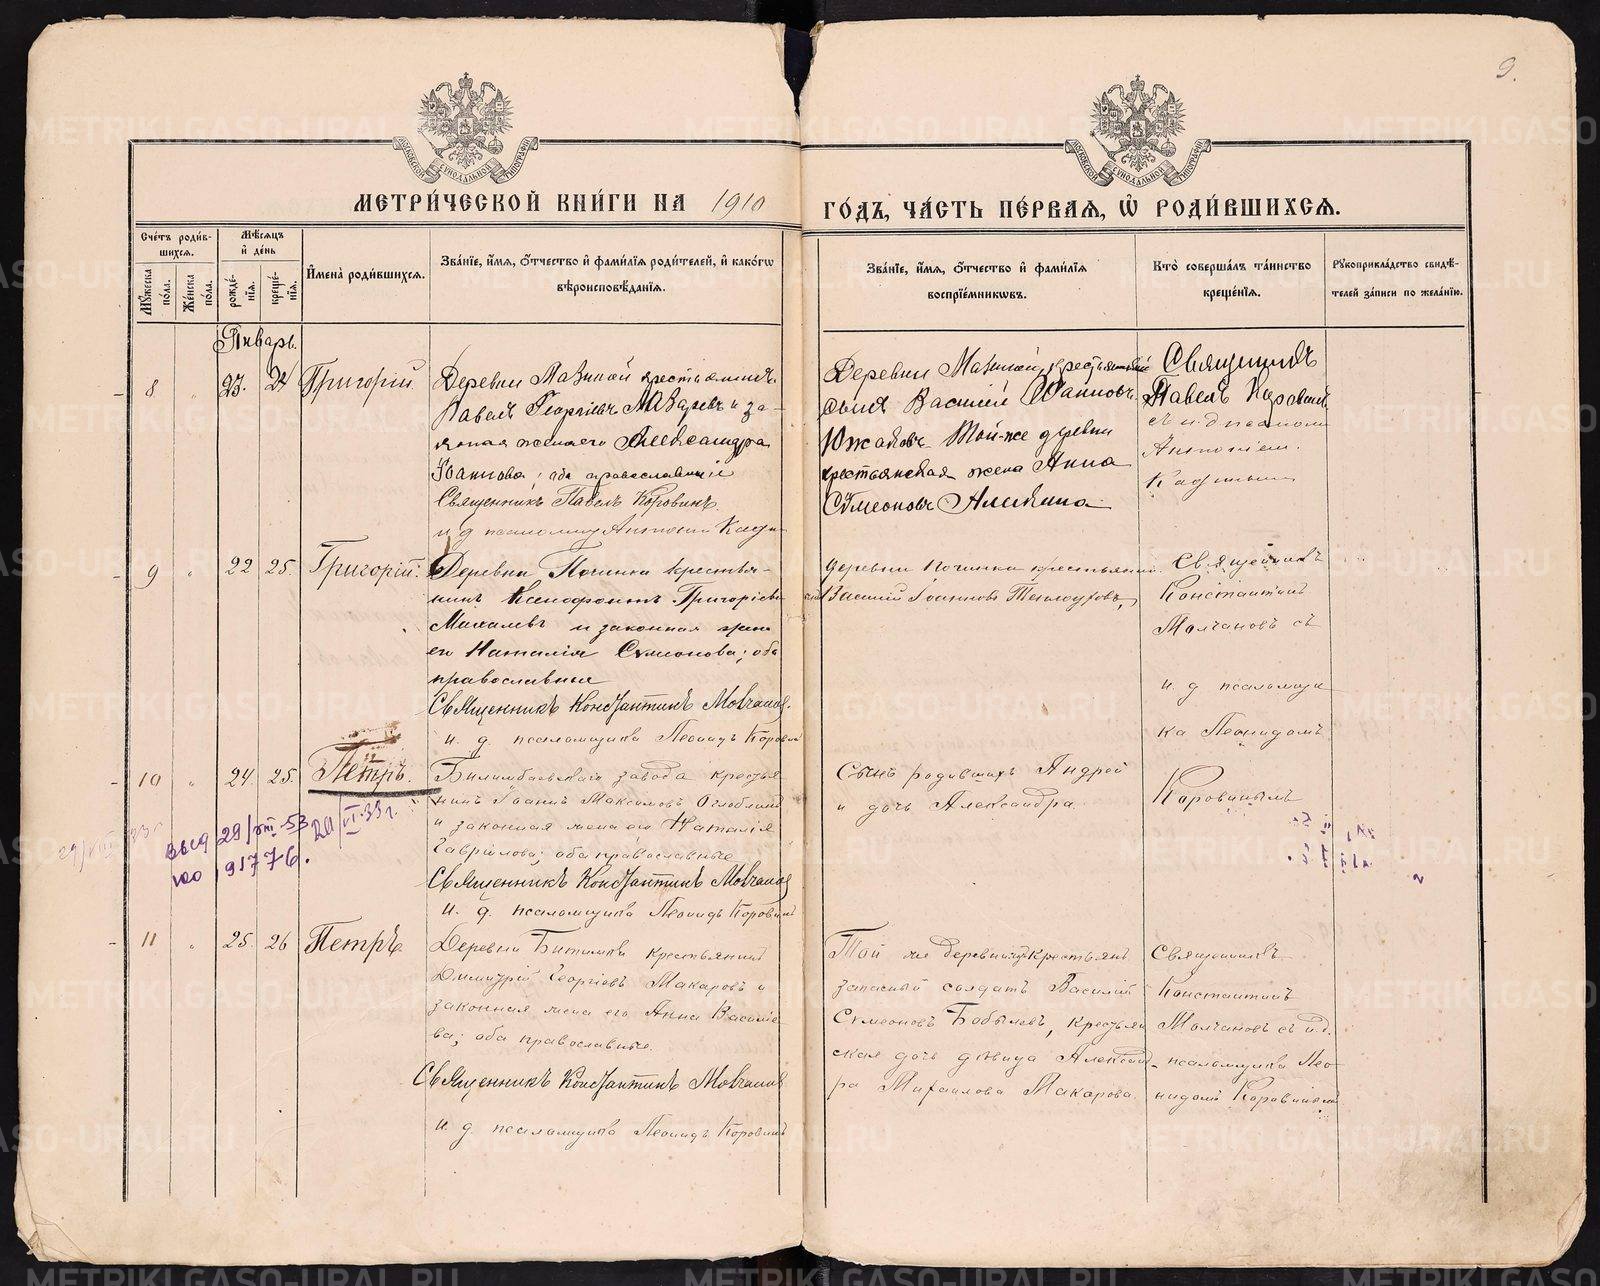 9.
МЕТРИ́ЧЕСКОЙ КНИ́ГИ НА 1910
ГО́ДЪ, ЧА́СТЬ ПЕ́РВАЯ, Ѡ҆ РОДИ́ВШИХСЯ.
Сче́тъ роди́в-
шихся.
Мꙋ́жеска
по́ла.
Же́нска
по́ла.
Мѣ́сяцъ
и҆ де́нь
рожде́-
нїя.
креще́-
нїя.
И҆мена̀ роди́вшихся.
Зва́нїе, и҆́мя, ѻ҆́тчество и҆ фами́лїя роди́телей, и҆ како́гѡ
вѣроисповѣ́данїя.
Зва́нїе, и҆́мя, ѻ҆́тчество и҆ фами́лїя
воспрїе́мникѡвъ.
Кто̀ соверша́лъ та́инство
креще́нїя.
Рꙋкоприкла́дство свидѣ́-
телей за́писи по жела́нїю.
Январь.
8 " 23. 24 Григорій.
Деревни Мазиной крестьянинъ
Павелъ Георгіевъ и за-
конная жена его Александра
Іоаннова; оба православніе
Священникъ Павелъ Коровинъ.
и д псаломщ Антоній
Деревни Мазиной крестьянскій
сынъ Василій Іоанновъ
Южаковъ Той-же деревни
крестьянская жена Анна
Сѵмеонова
Священникъ
Павелъ Коровинъ
съ и. д псалом
Антоніем
9 " 22 25. Григорій.
Деревни Починка крестья-
нинъ Ксенофонтъ Григоріевъ
Махалевъ и законная жена
его Наталія Сѵмеонова; оба
православные
Священникъ Константинъ Молчановъ.
и. д. псаломщика Леонидъ Коровинъ
деревни Починка крестьянинъ
Василій Іоанновъ
Священникъ
Константинъ
Молчановъ съ
и. д псаломщи
ка Леонидомъ
Коровинымъ
10 " 24 25. Петръ.
Билимбаевскаго завода крестья
нинъ Іоаннъ Максимовъ Оглоблинъ
и законная жена его Наталія
Гаврілова; оба православные
Священникъ Константинъ Молчановъ
и. д. псаломщика Леонидъ Коровинъ
Сынъ родившихъ Андрей
и дочь Александра.
29/VIII 33 г
29/VIII-53
91776.
VI-33 г.
11 " 25. 26 Петръ
Деревни Битимки крестьянинъ
Димитрій Георгіевъ Макаровъ и
законная жена его Анна Василіе
ва; оба православные.
Священникъ Константинъ Молчановъ
и. д. псаломщика Леонидъ Коровинъ
Той же деревни крестьян
запасный солдатъ Василій
Сѵмеоновъ Бобылевъ, крестьян
ская дочь дѣвица Александ-
ра Михаилова Макарова.
Священникъ
Константинъ
Молчановъ съ и.д.
псаломщика Лео
нидомъ Коровинымъ
METRIKI.GASO-URAL.RU